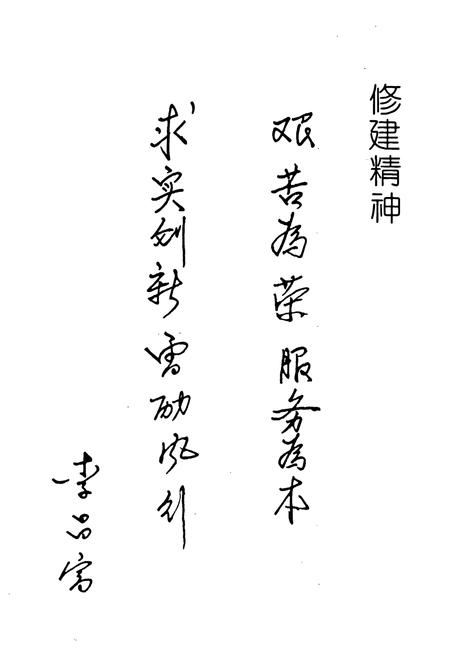 修建精神
艰苦为荣 服务为本
求实创新 雷励风行
李昌富